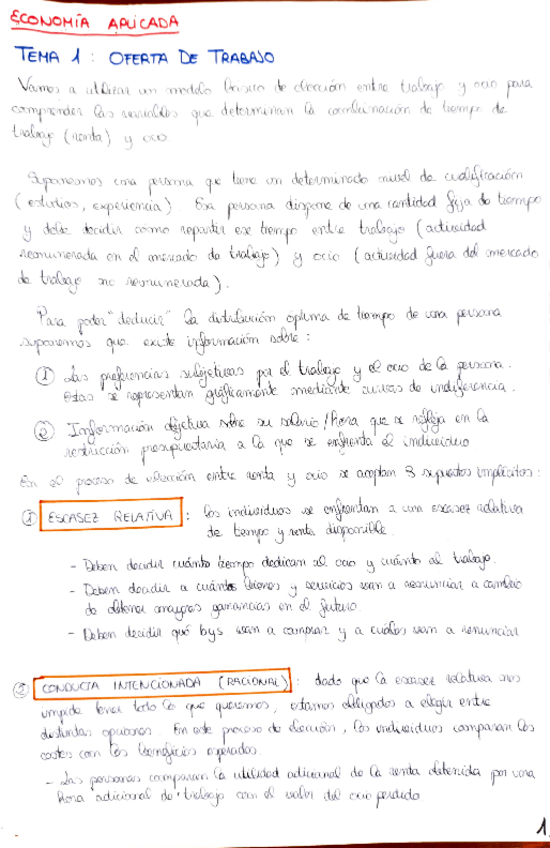 ECONOMÍA APLICADA
TEMA 1: OFERTA DE TRABAJO
Vamos a utilizar un modelo básico de elección entre trabajo y ocio para
comprender las variables que determinan la combinación de tiempo de
trabajo (renta) y ocio.
Suponemos una persona que tiene un determinado nivel de cualificación
(estudios, experiencia). Esa persona dispone de una cantidad fija de tiempo
y debe decidir como repartir ese tiempo entre trabajo (actividad
remunerada en el mercado de trabajo) y ocio (actividad fuera del mercado
de trabajo no remunerada).
Para poder "deducir" la distribución óptima de tiempo de una persona
suponemos que existe información sobre:
① Las preferencias subjetivas por el trabajo y el ocio de la persona.
Estas se representan gráficamente mediante curvas de indiferencia.
② Información objetiva sobre su salario/hora que se refleja en la
restricción presupuestaria a la que se enfrenta el individuo
En el proceso de elección entre renta y ocio se aceptan 3 supuestos implícitos:
① ESCASEZ RELATIVA: los individuos se enfrentan a una escasez relativa
de tiempo y renta disponible.
- Deben decidir cuánto tiempo dedican al ocio y cuánto al trabajo.
- Deben decidir a cuántos bienes y servicios van a renunciar a cambio
de obtener mayores ganancias en el futuro
- Deben decidir qué bys van a comprar y a cuáles van a renunciar
② CONDUCTA INTENCIONADA (RACIONAL): dado que la escasez relativa nos
impide tener todo lo que queremos, estamos obligados a elegir entre
distintas opciones. En este proceso de elección, los individuos comparan los
costes con los beneficios esperados.
- Las personas comparan la utilidad adicional de la renta obtenida por una
hora adicional de trabajo con el valor del ocio perdido.
1